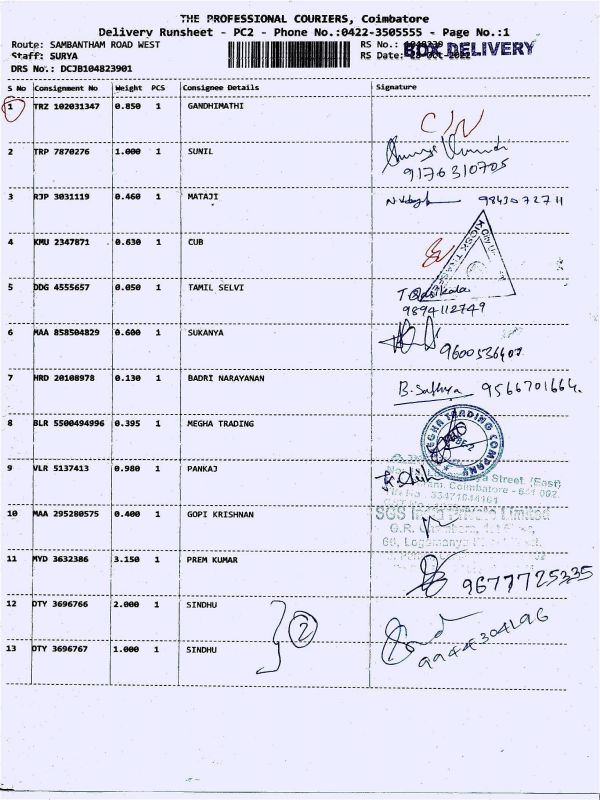 THE PROFESSIONAL COURIERS, Coimbatore
Delivery Runsheet - PC2 - Phone No.:0422-3505555 - Page No.:1
Route: SAMBANTHAM ROAD WEST
RS No.:
BOX DELIVERY
Staff: SURYA
RS Date:
DRS No.: DCJB104823901
S No Consignment No Weight PCS Consignee Details Signature
1 TRZ 102031347 0.850 1 GANDHIMATHI
2 TRP 7870276 1.000 1 SUNIL
9176310705
3 RJP 3031119 0.460 1 MATAJI 9843072711
4 KMU 2347871 0.630 1 CUB
5 DDG 4555657 0.050 1 TAMIL SELVI
9894112749
6 MAA 858504829 0.600 1 SUKANYA
9600536407
7 HRD 20108978 0.130 1 BADRI NARAYANAN B. Sathya 9566701664.
8 BLR 5500494996 0.395 1 MEGHA TRADING
MEGHA TRADING COMPANY
9 VLR 5137413 0.980 1 PANKAJ
Street, (East)
Coimbatore - 641 002.
10 MAA 295280575 0.400 1 GOPI KRISHNAN
SGS Limited
11 MYD 3632386 3.150 1 PREM KUMAR
9677725335
12 DTY 3696766 2.000 1 SINDHU
2
9944304196
13 DTY 3696767 1.000 1 SINDHU